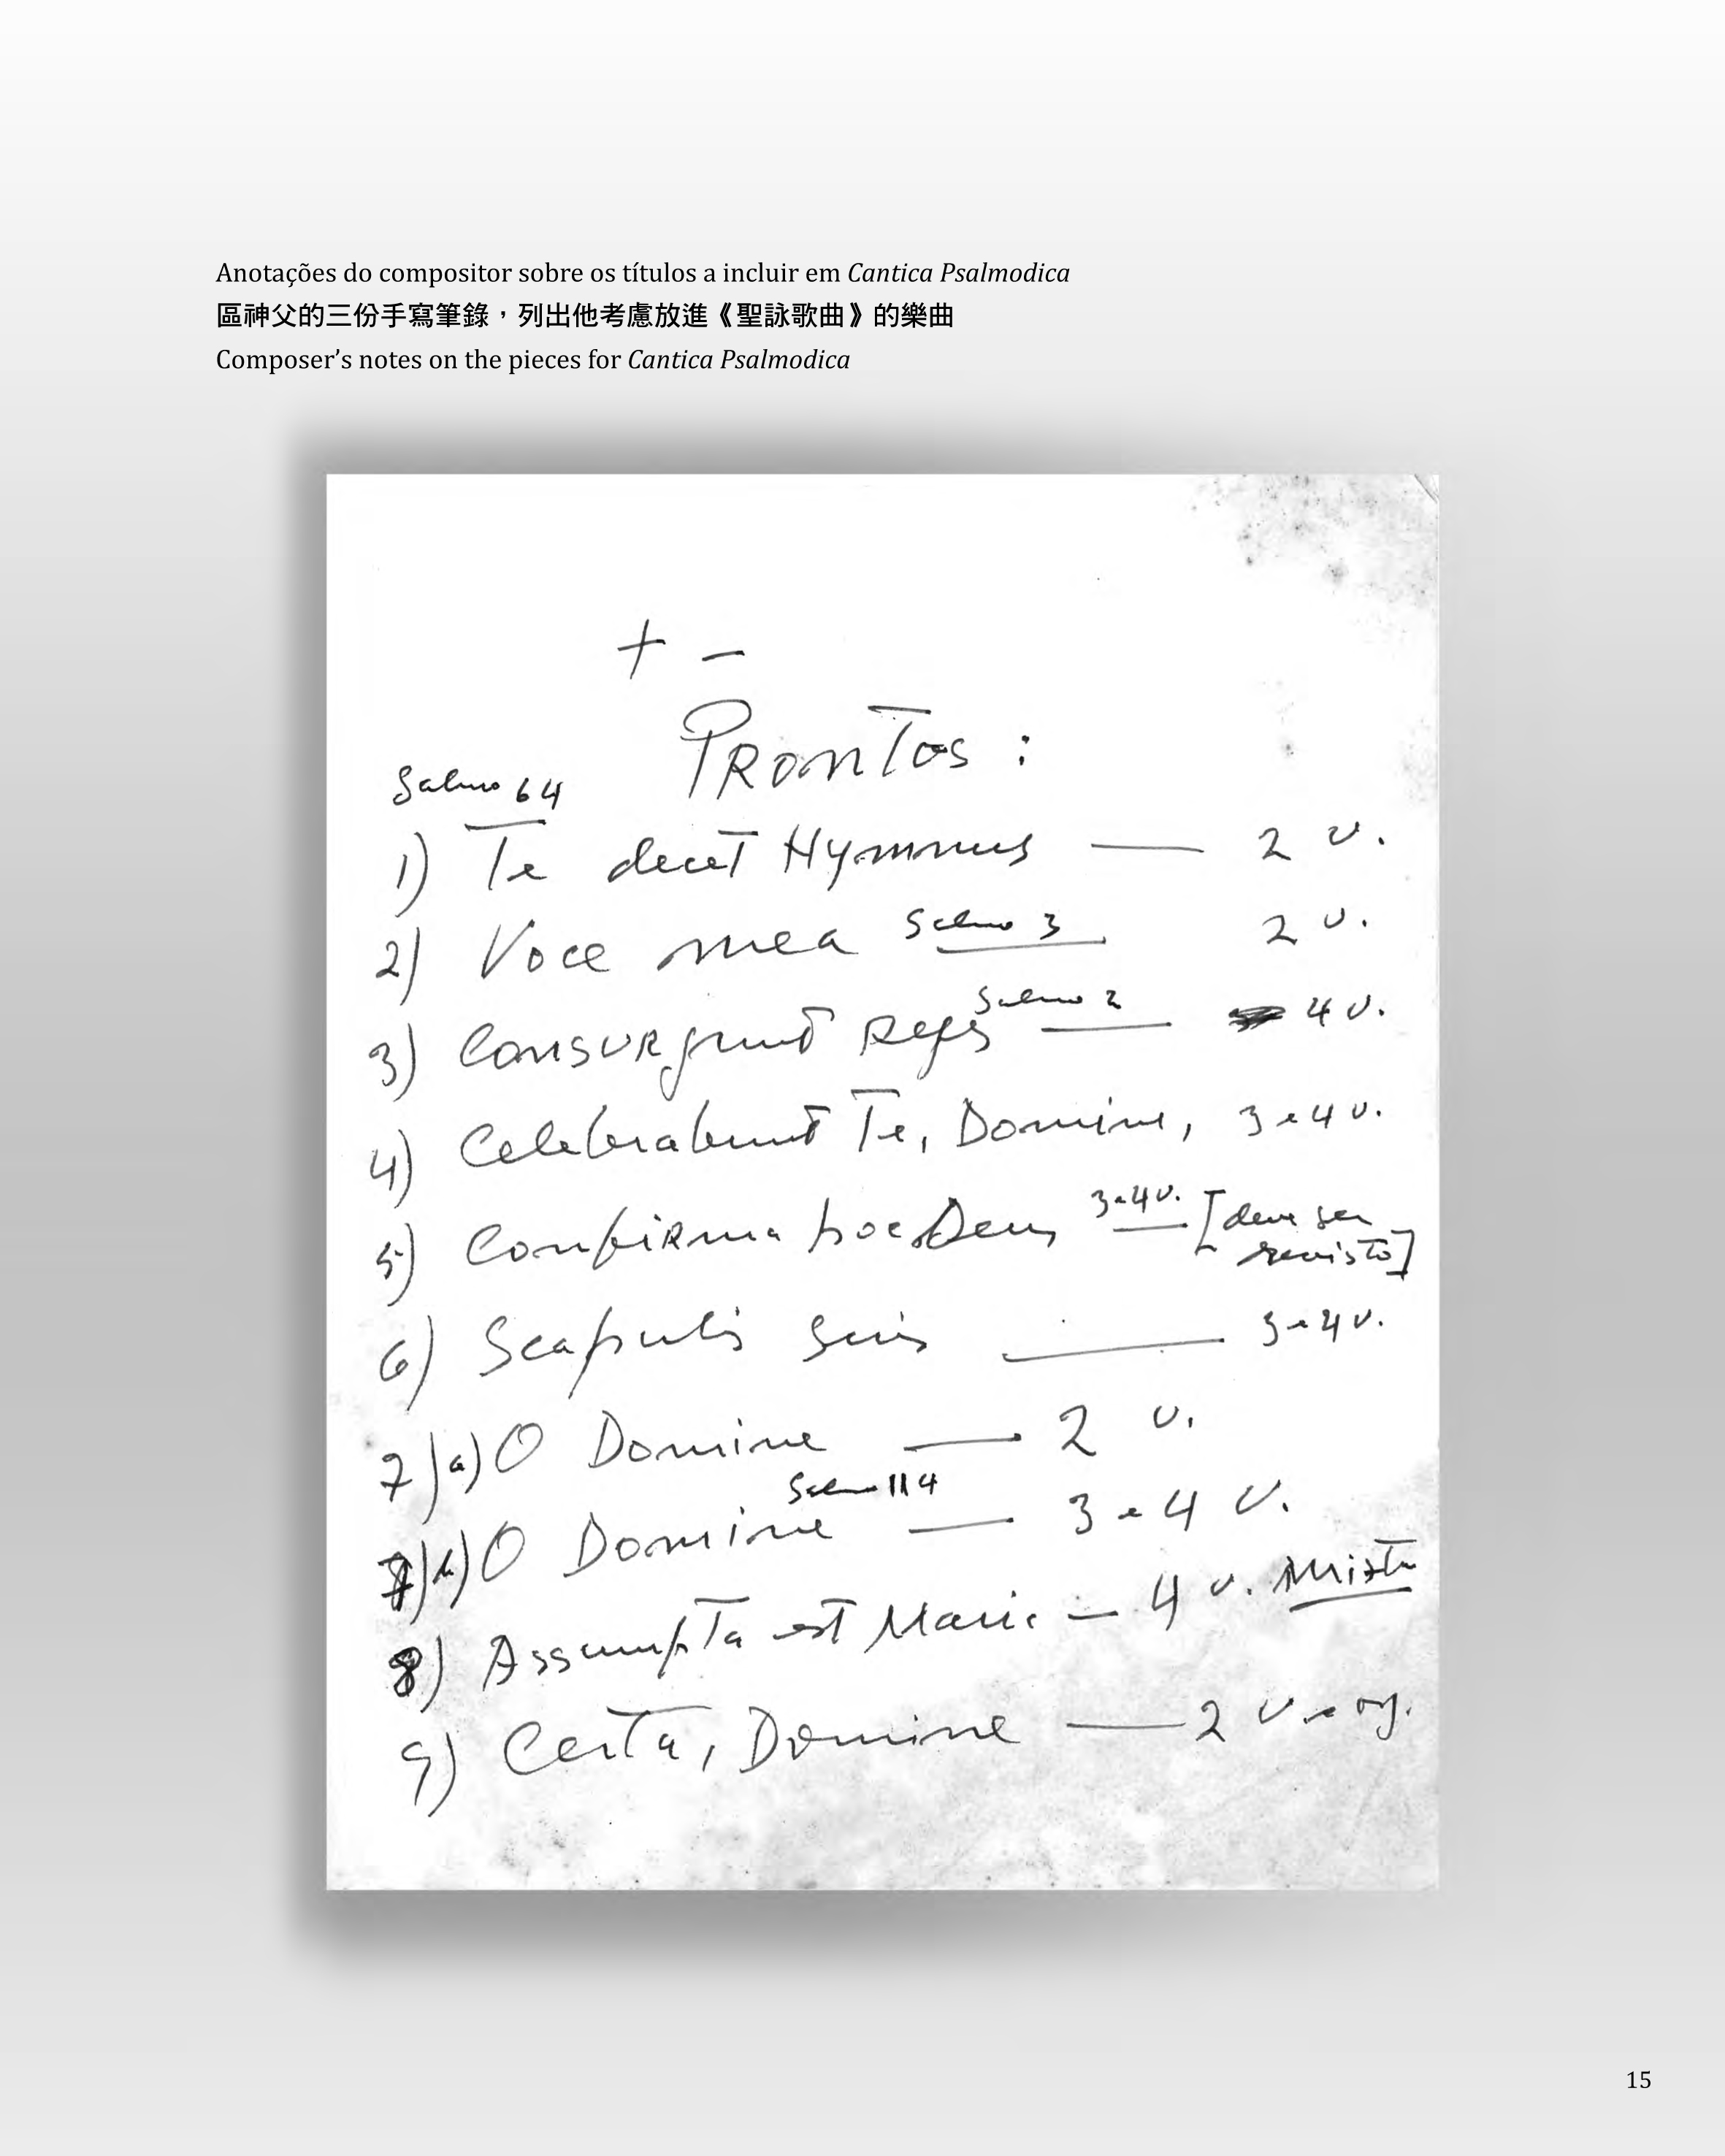 Anotações do compositor sobre os títulos a incluir em Cantica Psalmodica
區神父的三份手寫筆錄，列出他考慮放進《聖詠歌曲》的樂曲
Composer’s notes on the pieces for Cantica Psalmodica
+ –
Prontos :
Salmo 64
1) Te decet Hymnus — 2 v.
2) Voce mea Salmo 3 — 2 v.
3) Consurgunt Reges Salmo 2 — 4 v.
4) Celebrabunt Te, Domine, 3 e 4 v.
5) Confirma hoc Deus 3 e 4 v. — [deve ser revisto]
6) Scapulis suis — 3 e 4 v.
7) a) O Domine — 2 v.
7) b) O Domine Salmo 114 — 3 e 4 v.
8) Assumpta est Maria — 4 v. Mixta
9) Certa, Domine — 2 v. e org.
15